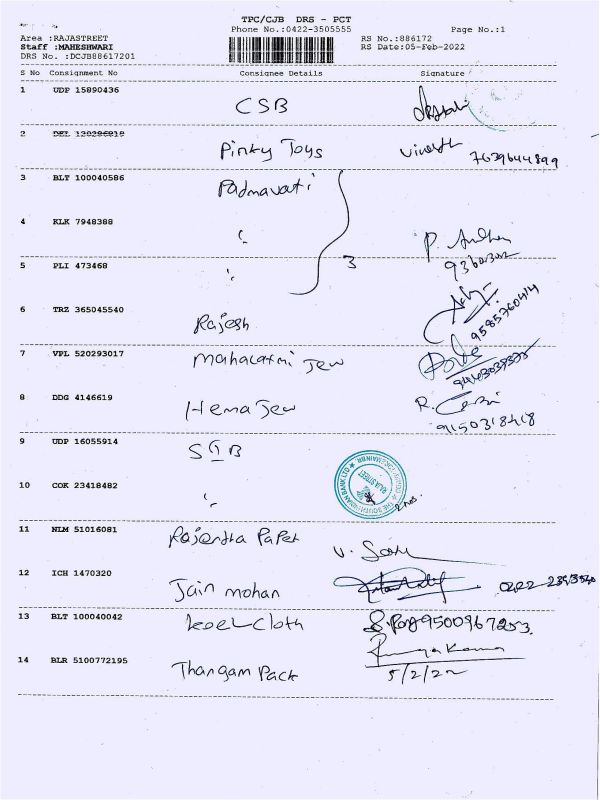 TPC/CJB DRS - PCT
Phone No.:0422-3505555
Page No.:1
Area :RAJASTREET
RS No.:886172
Staff :MAHESHWARI
RS Date:05-Feb-2022
DRS No. :DCJB88617201
S No Consignment No Consignee Details Signature
1 UDP 15890436 CSB
2 DEL 120286819 Pinky Toys 7639644899
3 BLT 100040586 Padmavati
4 KLK 7948388 "
5 PLI 473468 " 3
6 TRZ 365045540 Rajesh 9585760414
7 VPL 520293017 Mahalaxmi Jew
8 DDG 4146619 Hema Jew 9150318418
9 UDP 16055914 SIB
10 COK 23418482 "
11 NLM 51016081 Rajendra Paper
12 ICH 1470320 Jain mohan
13 BLT 100040042 koel cloth 9500967253
14 BLR 5100772195 Thangam Pack 5/2/22